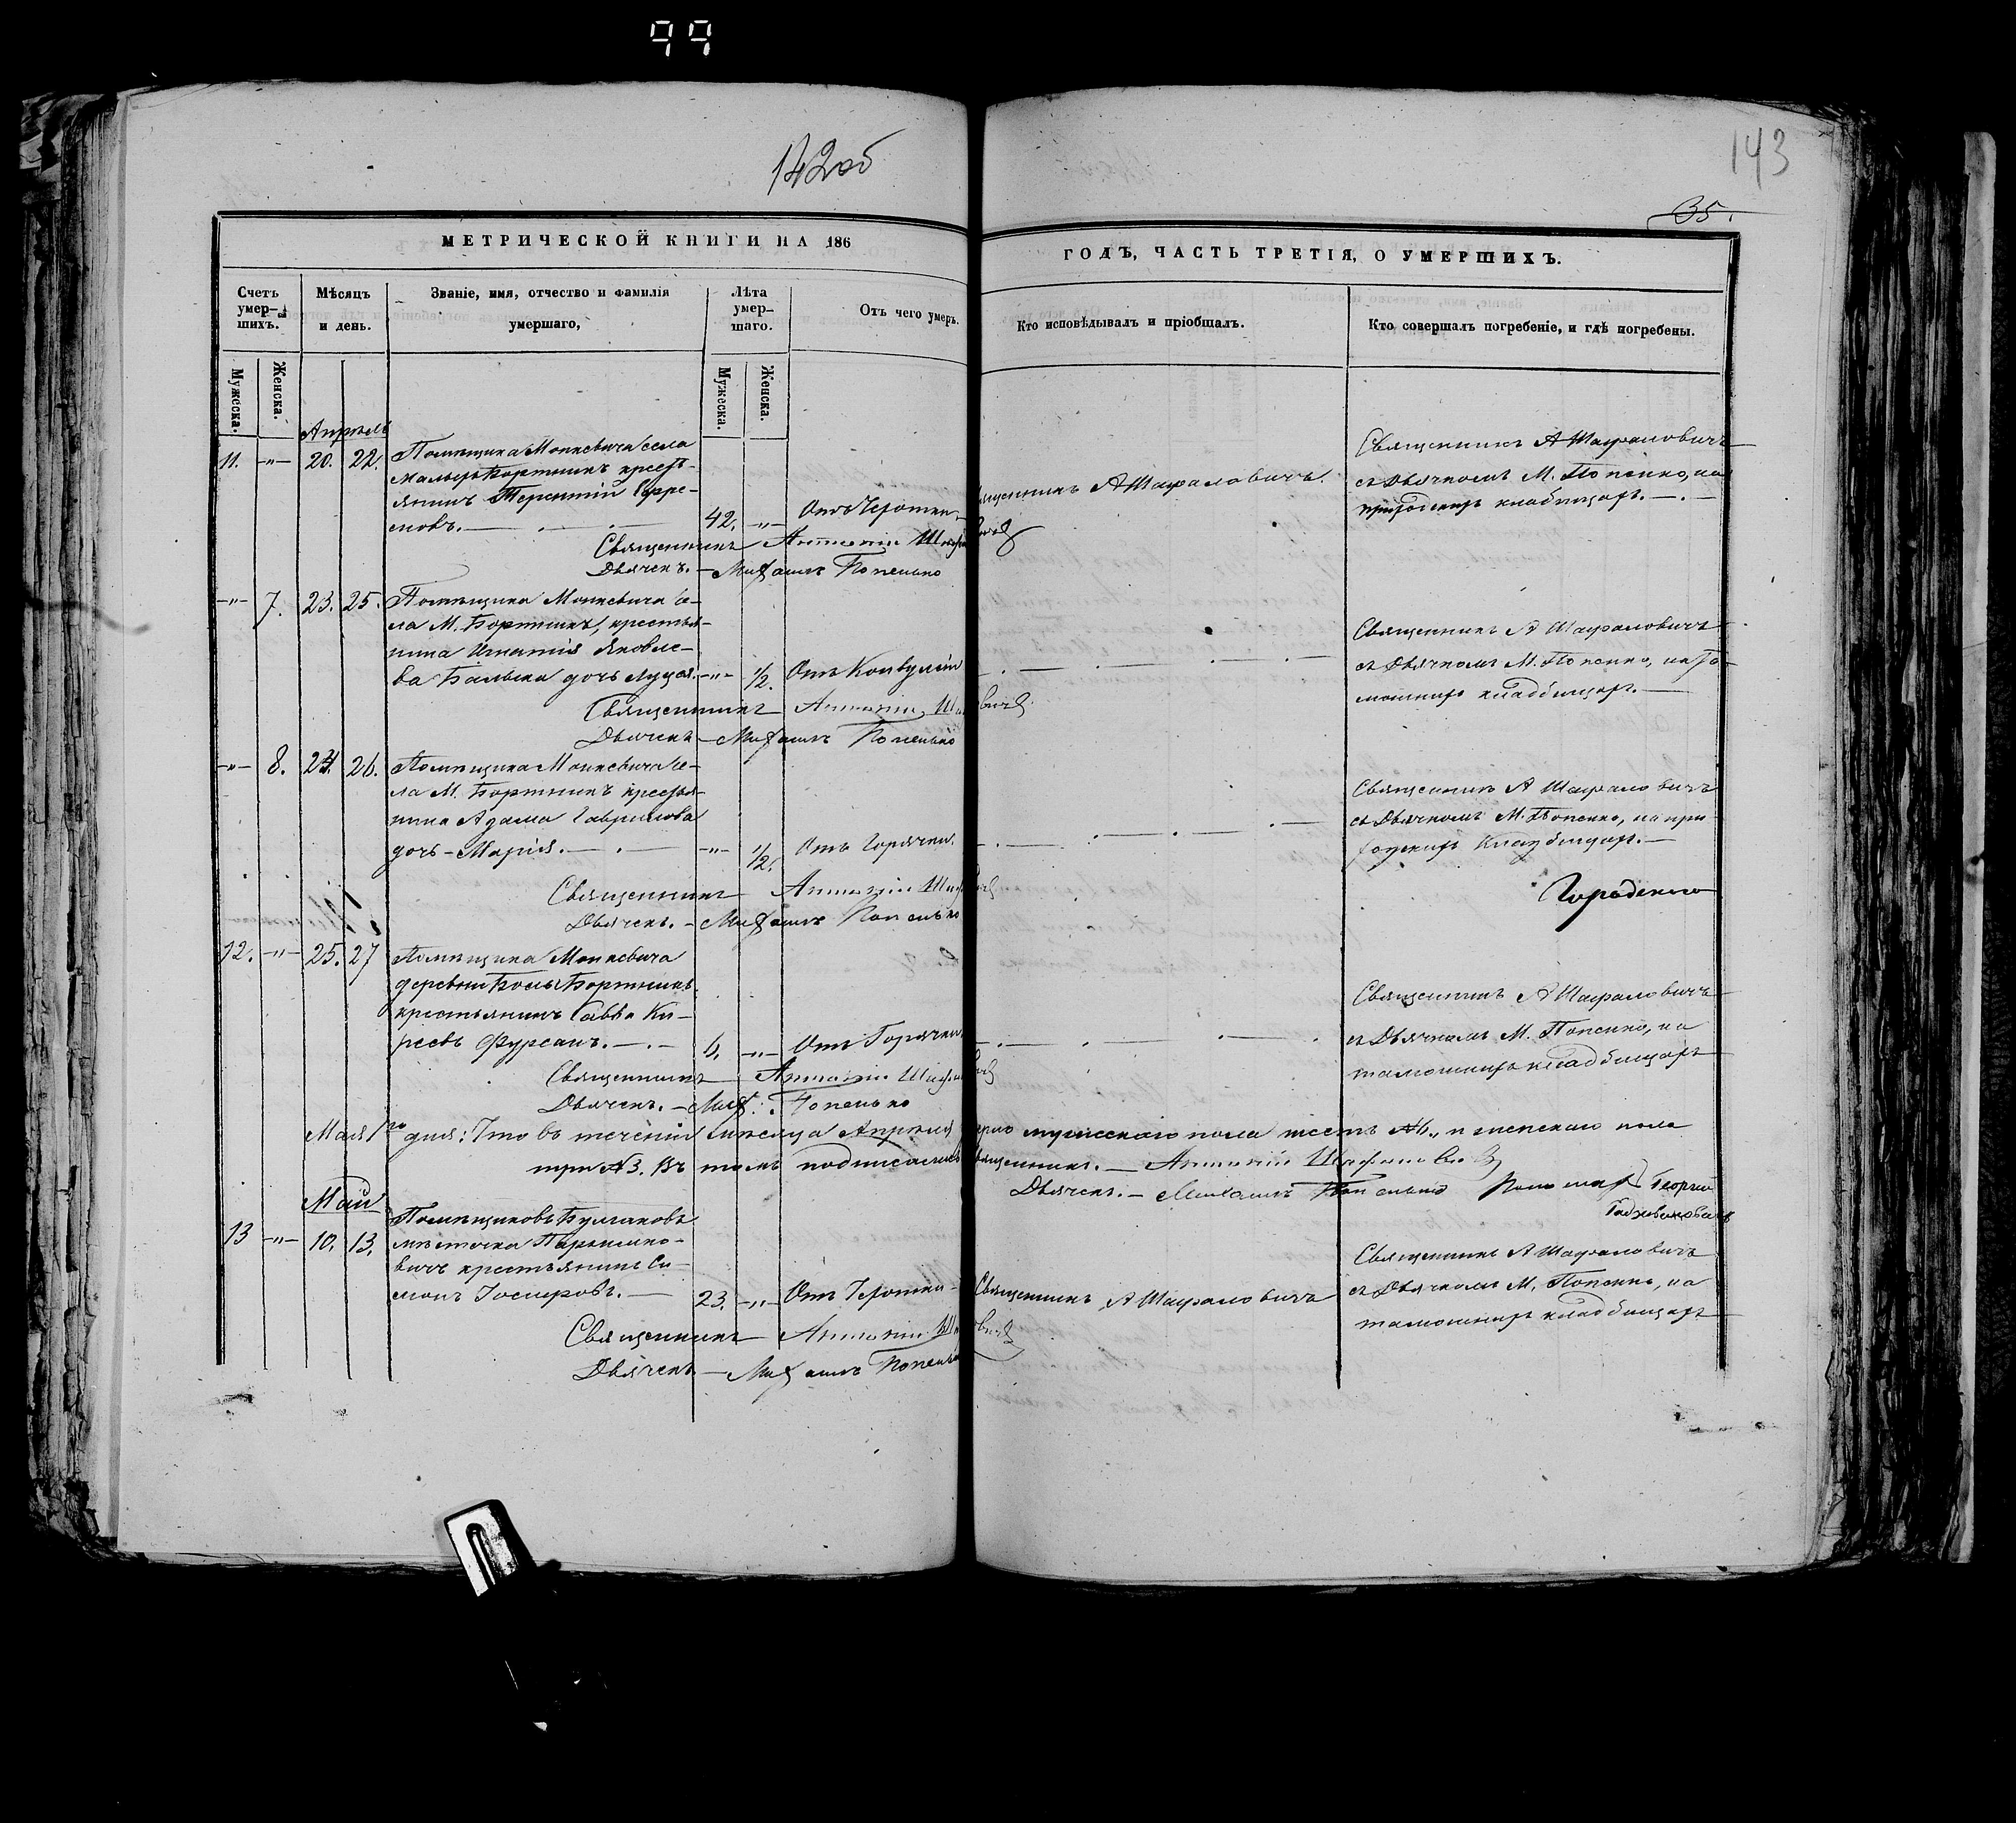 99
142об
143
35.
МЕТРИЧЕСКОЙ КНИГИ НА 186
ГОДЪ, ЧАСТЬ ТРЕТІЯ, О УМЕРШИХЪ.
Счетъ умер-шихъ.
Мѣсяцъ и день.
Званіе, имя, отчество и фамилія умершаго,
Лѣта умер-шаго.
Отъ чего умеръ.
Кто исповѣдывалъ и пріобщалъ.
Кто совершалъ погребеніе, и гдѣ погребены.
Мужеска.
Женска.
Мужеска.
Женска.
Апрѣль
11. -"- 20. 22. Помѣщика Монкевича села
малыхъ Бортникъ кресть-
янинъ Терентій
новъ. 42. -"- Отъ Чехотки
Священникъ А Шафаловичъ.
Священникъ А Шафаловичъ
съ Дьячкомъ М. Попенко, на
приходскомъ кладбищѣ.
Священникъ Антоній
Дьячекъ. - Михаилъ Попенько
-"- 7. 23. 25. Помѣщика Монкевича се-
ла М. Бортникъ, крестья-
нина Игнатія Яковле-
ва дочь Луція. -"- 1/2. Отъ Конвулсіи
Священникъ А Шафаловичъ
съ Дьячкомъ М. Попенко, на та-
мошнихъ кладбищахъ.
Священникъ Антоній
Дьячекъ - Михаилъ Попенько
-"- 8. 24. 26. Помѣщика Монкевича се-
ла М. Бортникъ крестья-
нина Адама Гаврилова
дочь - Марія. -"- 1/2. Отъ Горячки.
Священникъ А Шафаловичъ
съ Дьячкомъ М. Попенко, на при-
ходскихъ кладбищахъ.
Священникъ Антоній
Дьячекъ. - Михаилъ Попенько
12. -"- 25. 27 Помѣщика Монкевича
деревни Больш Бортникъ
крестьянинъ Савва Ки-
реевъ Фурсанъ. 6. -"- Отъ Горячки
Священникъ А Шафаловичъ
съ Дьячкомъ М. Попенко, на
тамошнихъ кладбищахъ
Священникъ Антоній
Дьячекъ. - Мих: Попенько
Маія 1го дня: Что въ теченіи мѣсяца Апрѣля умерло мужескаго пола шесть №6., и женскаго пола
три №3. Въ томъ подписались Священникъ. - Антоній
Дьячекъ. - Михаилъ Попенько Пономарь Георгій
Май
13 -"- 10. 13. Помѣщиковъ Булгаковъ
мѣстечка Паричи
крестьянинъ Си-
монъ 23. -"- Отъ Чехотки
Священникъ А Шафаловичъ
Священникъ А Шафаловичъ
съ Дьячкомъ М. Попенко, на
тамошнихъ кладбищахъ
Священникъ Антоній
Дьячекъ - Михаилъ Попенько